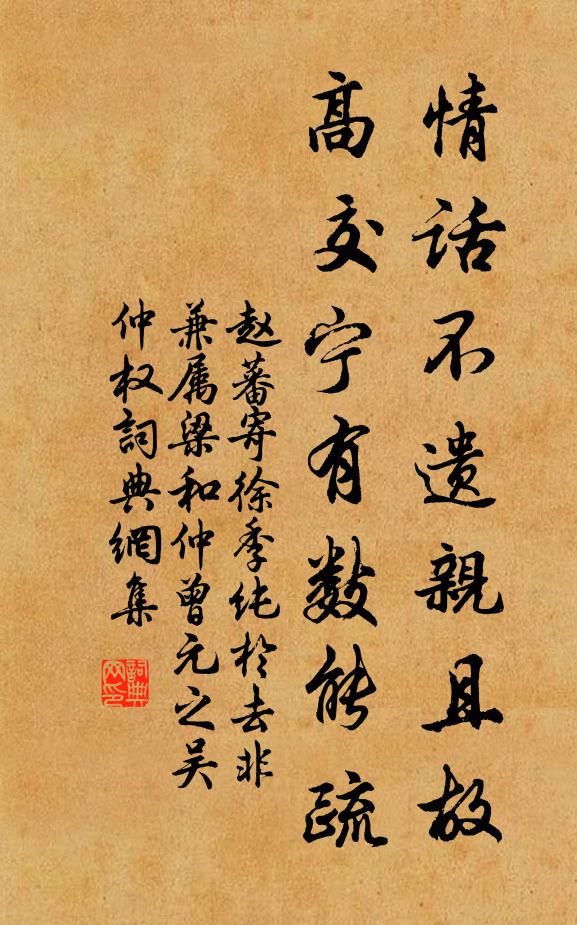 情话不遗親且故
高交宁有数能疏
赵蕃寄徐季纯於去非
兼属梁和仲曾元之吴
仲权詞典網集
詞典网印